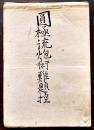 圓極流炮術難題控